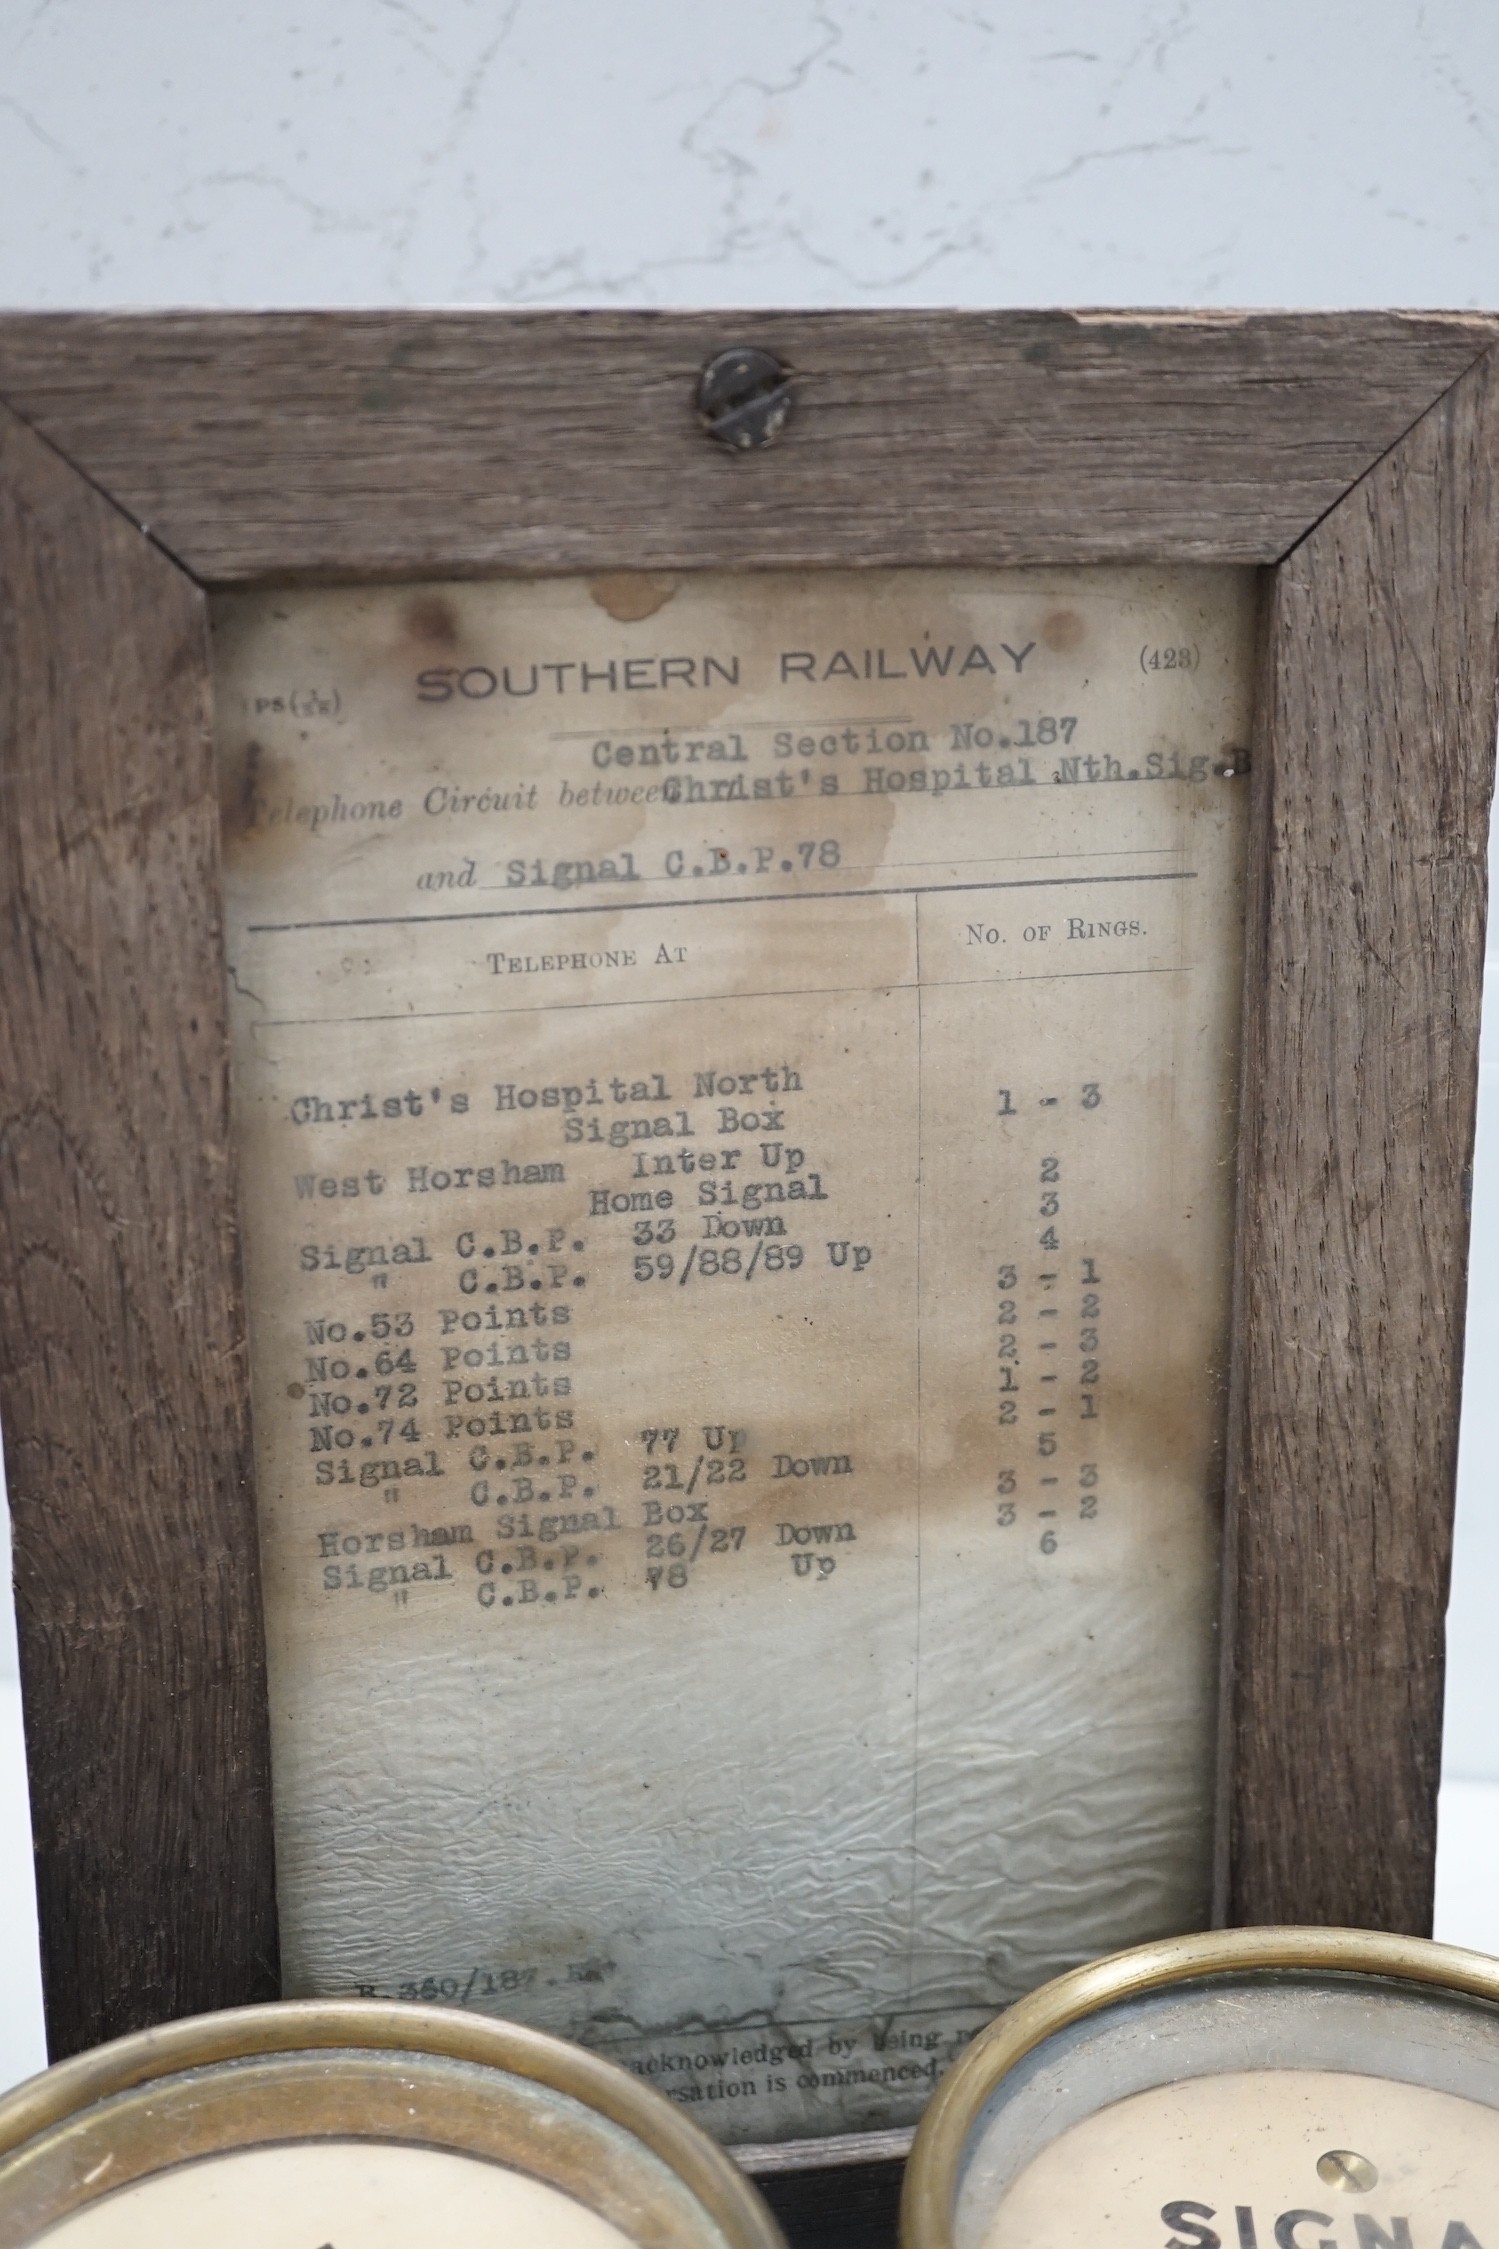 PS SOUTHERN RAILWAY (423)
Central Section No.187
Telephone Circuit between Christ's Hospital Nth.Sig.B
and Signal C.B.P.78
TELEPHONE AT No. OF RINGS.
Christ's Hospital North 1 - 3
Signal Box
West Horsham Inter Up 2
Home Signal 3
Signal C.B.P. 33 Down 4
" C.B.P. 59/88/89 Up 3 - 1
No.53 Points 2 - 2
No.64 Points 2 - 3
No.72 Points 1 - 2
No.74 Points 2 - 1
Signal C.B.P. 77 Up 5
" C.B.P. 21/22 Down 3 - 3
Horsham Signal Box 3 - 2
Signal C.B.P. 26/27 Down 6
" C.B.P. 78 Up
360/187.
acknowledged by being
rsation is commenced.
SIGNA